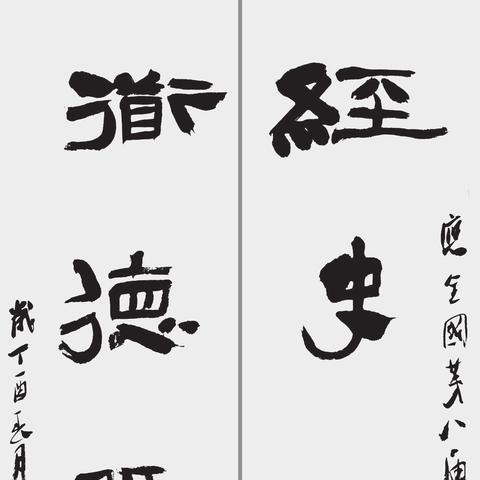 應全國第八屆
經史
衜德
歲丁酉月